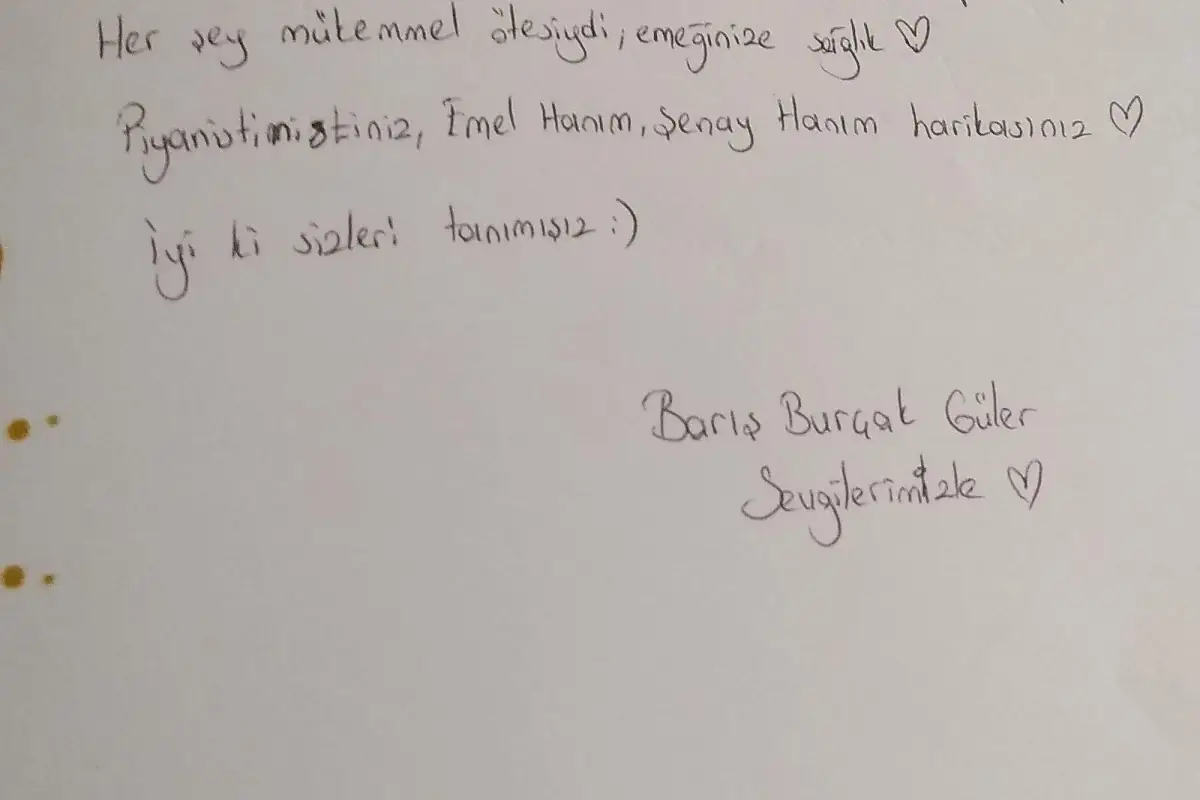 Her şey mükemmel ötesiydi, emeğinize sağlık ♡
Piyanistimistiniz, Emel Hanım, Şenay Hanım harikasınız ♡
İyi ki sizleri tanımışız :)
Barış Burçak Güler
Sevgilerimizle ♡